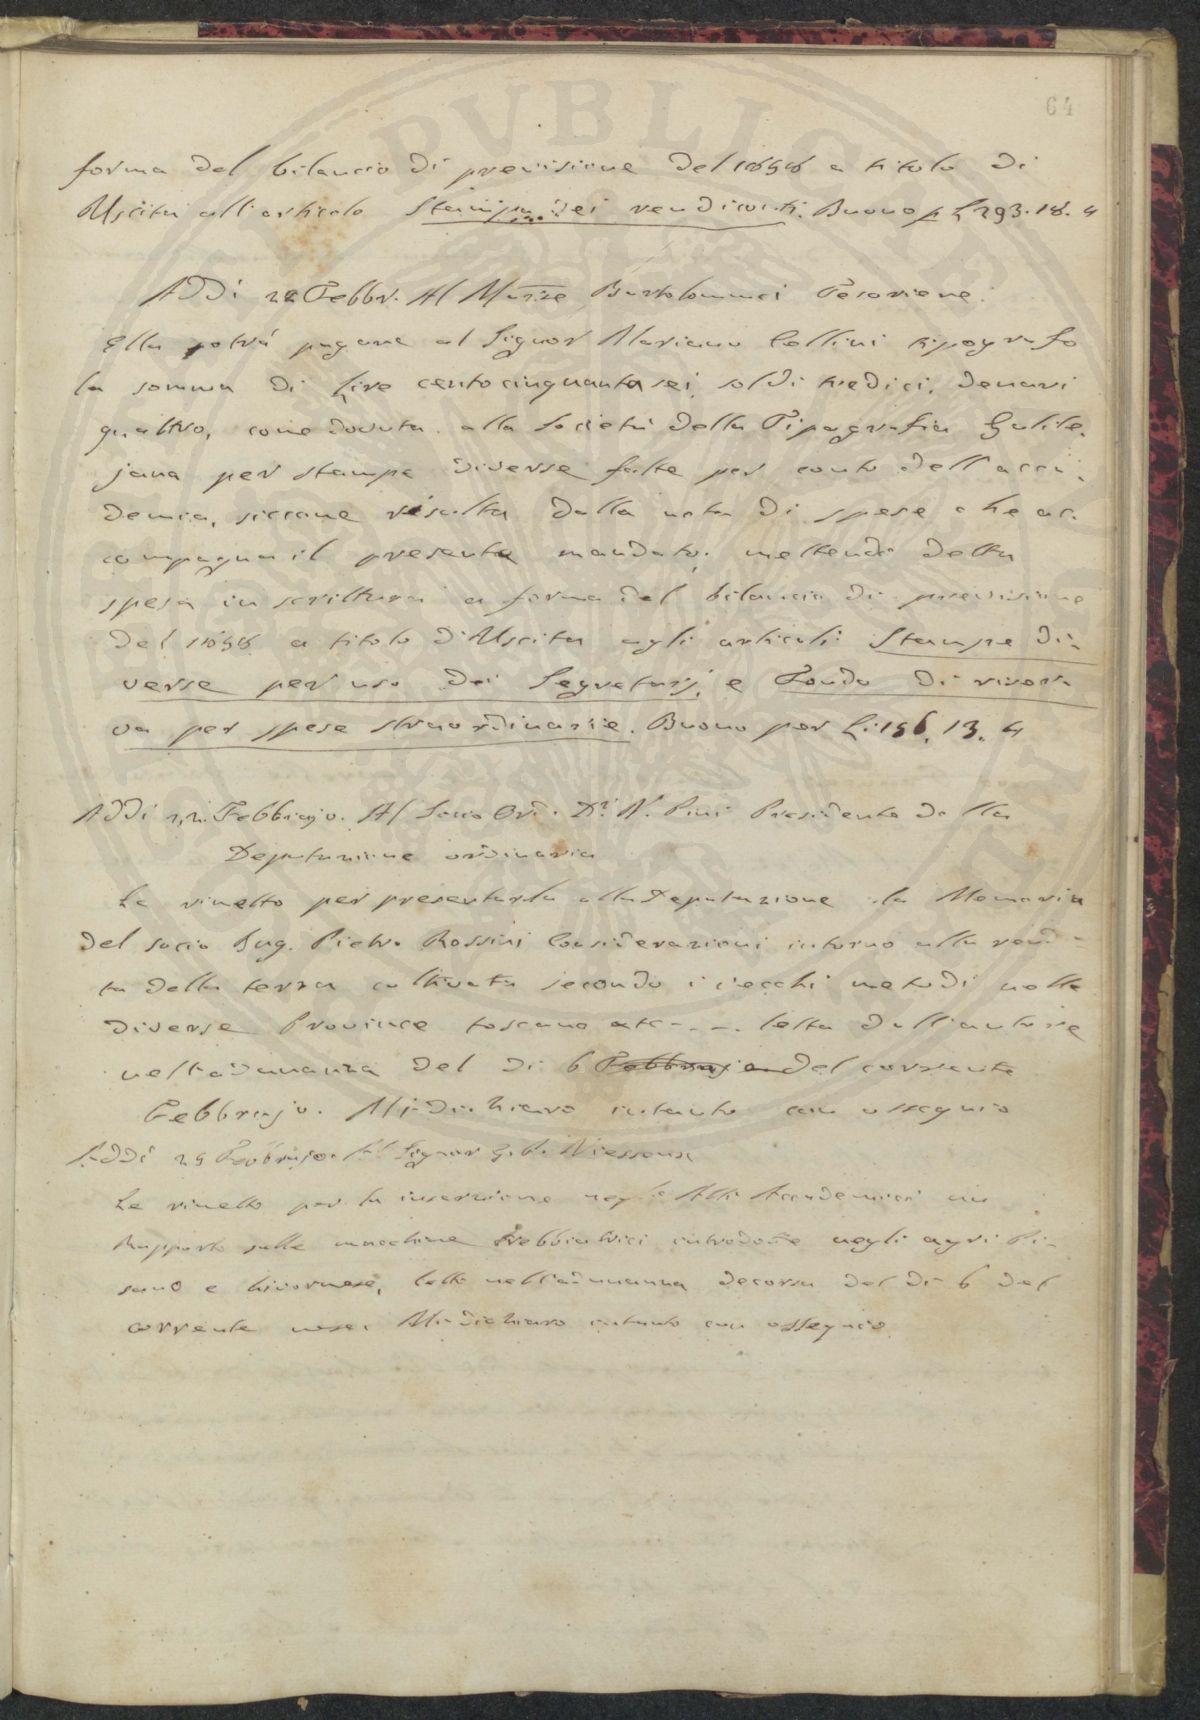 64
forma del bilancio di previsione del 1858 a titolo di
Uscita all'articolo Stampa dei rendiconti. Buono p L 293.18.4
Addì 22 Febbr. Al Marse Bartolommei Tesoriere.
Ella potrà pagare al Signor Mariano Cellini tipografo
la somma di Lire centocinquantasei, soldi tredici, denari
quattro, come dovuta alla Società della Tipografia Galile-
jana per stampe diverse fatte per conto dell'acca-
demia, siccome risulta dalla nota di spese che ac-
compagna il presente mandato; mettendo detta
spesa in scrittura a forma del bilancio di previsione
del 1858 a titolo d'Uscita agli articoli Stampe di-
verse per uso dei Segretarj, e Fondo di riser-
va per spese straordinarie. Buono per L: 156. 13. 4
Addì Febbrajo. Al Socio Ord. Dr. N. Pini Presidente della
Deputazione ordinaria
Le rimetto per presentarla alla Deputazione la Memoria
del socio Ing. Pietro Rossini Considerazioni intorno alla rendi-
ta della terra coltivata secondo i vecchi metodi nelle
diverse Province toscane etc - - - letta dall'autore
nell'adunanza del dì 6 Febbrajo del corrente
Febbrajo. Mi dichiaro intanto con ossequio
Addì Febbrajo. Al Signor
Le rimetto per la inserzione negli Atti Accademici un
Rapporto sulle macchine trebbiatrici introdotte negli agri Pi-
sano e Livornese, letto nell'adunanza decorsa del dì 6 del
corrente mese. Mi dichiaro intanto con ossequio